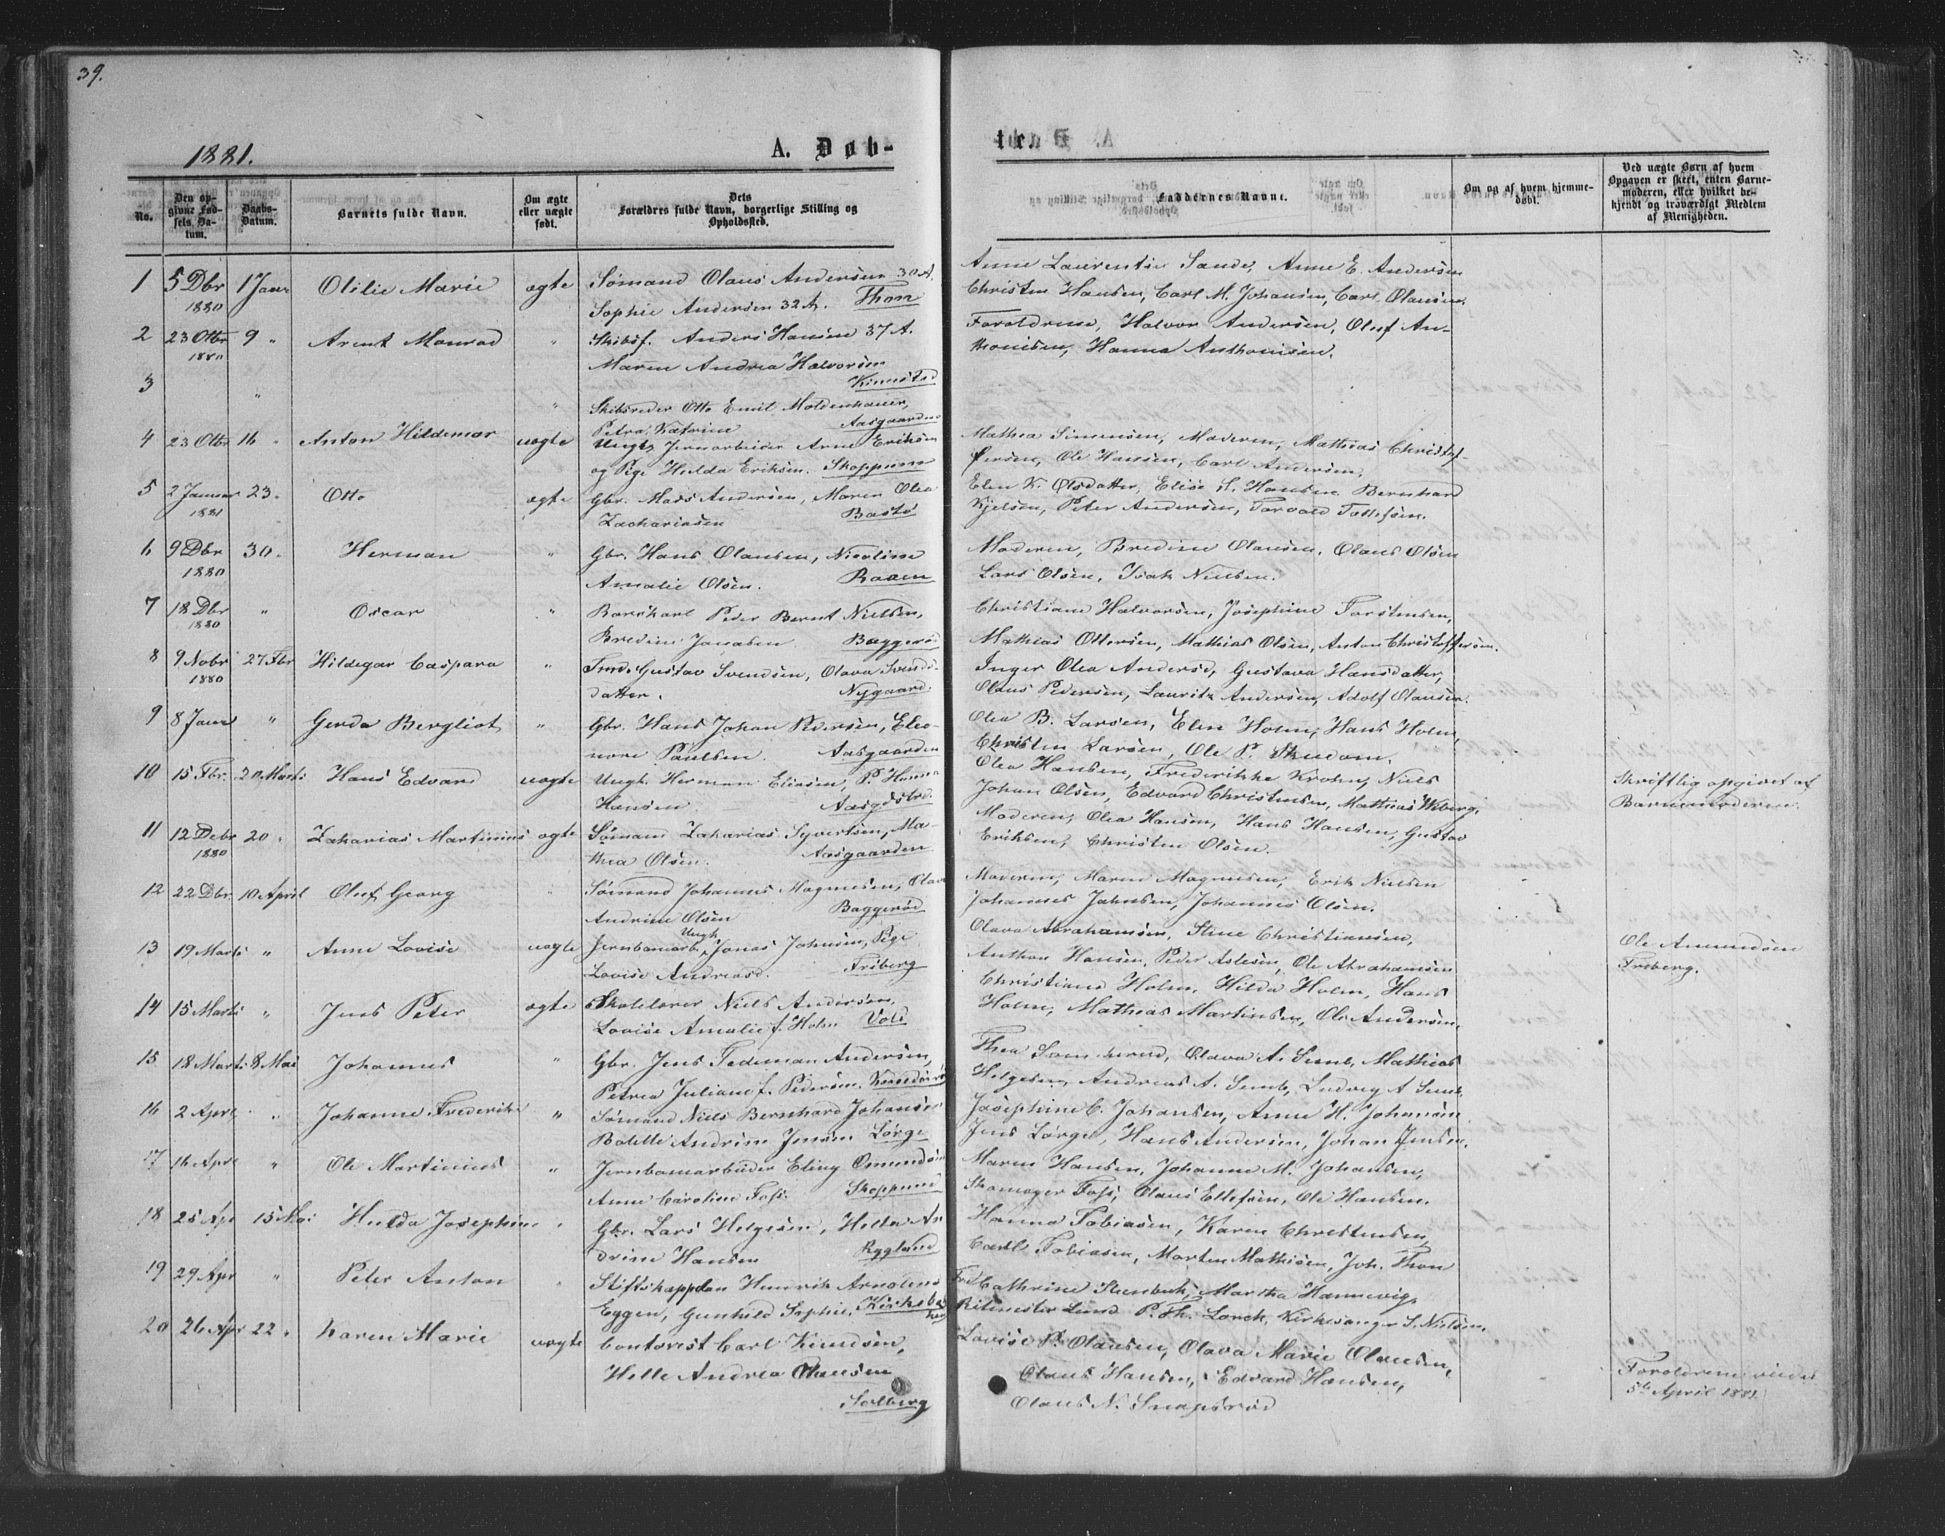 39.
1881.
A. Døb-
No.
Den op-
givne Fød-
sels Da-
tum.
Daabs-
Datum.
Barnets fulde Navn.
Om ægte
eller uægte
født.
Dets
Forældres fulde Navn, borgerlige Stilling og
Opholdssted.
1 5 Dbr 1880 1 Janr Olilie Marie ægte Sømand Olaus Andersen 30 A.
Sophie Andersen 32 A. Thon
2 23 Otbr 1880 9 " Arent Monrad " Skibsf. Anders Hansen 37 A.
Maren Andrea Halvorsen
Kinnstad
3 " " Skibsreder Otto Emil Moldenhauer,
Petra Katrine Aasgaarden
4 23 Otbr 16 " Anton Hildemar uægte Ungk. Jernarbeider Arne Eriksen
og Pige Hilda Eriksen. Skoppum
5 2 Januar 1881 23 " Otto ægte Gbr. Mads Andersen, Maren Olea
Zachariasen Bastø
6 9 Dbr 1880 30 " Herman " Gbr. Hans Olausen, Nicoline
Amalie Olsen. Raaen
7 18 Dbr 1880 " Oscar " Banekarl Peder Bernt Nielsen,
Bredine Jonasen Baggerød
8 9 Nobr 1880 27 Fbr Hildegar Caspara " Smd. Gustav Svendsen, Olava Svends-
datter. Nygaard
9 8 Janr " Gerda Bergliot " Gbr. Hans Johan Pedersen, Eleo-
nore Paulsen. Aasgaarden
10 15 Fbr. 20 Marts Hans Edvard uægte Ungk. Herman Eliasen, P. Hanna
Hansen Aasgdstrd.
11 12 Debr 1880 20 " Zakarias Martinius ægte Sømand Zakarias Syvertsen, Ma-
thea Olsen. Aasgaarden
12 22 Dbr 10 April Oluf Georg " Sømand Johannes Magnusen, Olava
Andrine Olsen Baggerød
13 19 Marts " Anne Lovise uægte Jernbanearb. Ungk. Jonas Johnsen, Pige
Lovise Andreasd. Friberg
14 15 Marts " Jens Peter ægte Skolelærer Niels Andersen,
Lovise Amalie f. Holm Vold
15 18 Marts 8 Mai Johannes " Gbr. Jens Tideman Andersen,
Petrea Juliane f. Pedersen.
16 2 Apr " Johanne Frederikke " Sømand Niels Bernhard Johansen
Bolette Andrine Jensen Lørge
17 16 Apr " Ole Martinius " Jernbanearbeider Eling Omundsen
Anne Caroline Foss. Skoppum
18 25 Apr 15 Mai Hulda Josephine " Gbr. Lars Helgesen, Helka An-
drine Hansen Rygland
19 29 Apr " Peter Anton " Stiftskapellan Henrik Arnoldus
Eggen, Gunhild Sophie, Kirkebak-
ken
20 26 Apr 22 " Karen Marie uægte Contorist Carl Knudsen,
Helle Andrea Olausen
Solberg
te.
Faddernes Navne.
Om og af hvem hjemme-
døbt.
Ved uægte Børn af hvem
Opgaven er skeet, enten Barne-
moderen, eller hvilket be-
kjendt og troværdigt Medlem
af Menigheden.
Anne Laurentse Sande, Anne E. Andersen
Christen Hansen, Carl M. Johansen, Carl Olausen.
Foroldrene, Halvor Andersen, Oluf An-
thonisen, Hanna Anthonisen.
Mathea Simensen, Moderen, Mathias Christof
fersen, Ole Hansen, Carl Andersen,
Elen K. Olsdatter, Elise H. Hansen Bernhard
Kjelsen, Peter Andersen, Torvald Tollefsen.
Moderen, Bredine Olausen, Olaus Olsen
Lars Olsen, Isak Nielsen.
Christiane Halvorsen, Josephine Torstensen,
Mathias Ottersen, Mathias Olsen, Anton Christoffersen.
Inger Olea Andersd, Gustava Hansdatter,
Olaus Pedersen, Lauritz Andersen, Adolf Olausen.
Olea B. Larsen, Elen Holm, Hans Holm,
Christen Larsen, Ole P. Skudom.
Olea Hansen, Frederikke Krohn, Niels
Johan Olsen, Edvard Christensen, Mathias Wiberg. Skriftlig opgivet af
Moderen, Olea Hansen, Hans Hansen, Gustav Barnemoderen.
Eriksen, Christen Olsen.
Moderen, Maren Magnusen, Erik Nielsen
Johannes Johnsen, Johannes Olsen.
Olava Abrahamsen, Stine Christiansen,
Anthon Hansen, Peder Aslesen, Ole Abrahamsen Ole Amundsen
Friberg.
Christiane Holm, Hilda Holm, Hans
Holm, Mathias Martinsen, Ole Andersen.
Thea, Olava A. Semb, Mathias
Helgesen, Andreas A. Semb, Ludvig A Semb.
Josephine C. Johansen, Anne H. Johansen
Jens Lørge, Hans Andersen, Johan Jensen.
Maren Hansen, Johanne M. Johansen,
Skomager Foss, Olaus Ellefsen, Ole Hansen.
Hanna Tobiasen, Karen Christensen,
Carl Tobiasen, Morten Mathisen, Joh. Thon
Fru Cathrine Steenbuch, Martha Hannevig,
Ritmester Lund P. Th. Lorck, Kirkesanger S. Nielsen.
Lovise P. Olausen, Olava Marie Olausen,
Olaus Hansen, Edvard Hansen,
Olaus N. Snapsrød
Foroldrene viede
5te April 1881